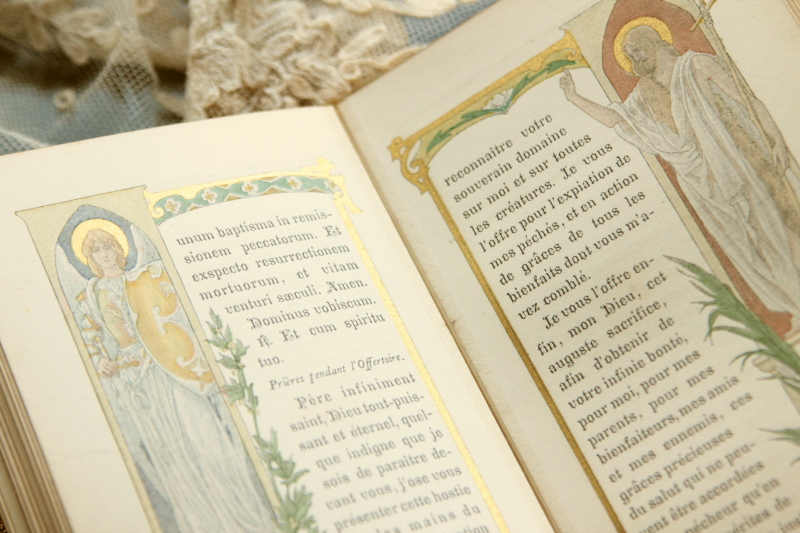 unum baptisma in remis-
sionem peccatorum. Et
exspecto resurrectionem
mortuorum, et vitam
venturi sæculi. Amen.
Dominus vobiscum.
℟. Et cum spiritu
tuo.
Prières pendant l'Offertoire.
Père infiniment
saint, Dieu tout-puis-
sant et éternel, quel-
que indigne que je
sois de paraître de-
vant vous, j'ose vous
présenter cette hostie
les mains du
reconnaître votre
souverain domaine
sur moi et sur toutes
les créatures. Je vous
l'offre pour l'expiation de
mes péchés, et en action
de grâces de tous les
bienfaits dont vous m'a-
vez comblé.
Je vous l'offre en-
fin, mon Dieu, cet
auguste sacrifice,
afin d'obtenir de
votre infinie bonté,
pour moi, pour mes
parents, pour mes
bienfaiteurs, mes amis
et mes ennemis, ces
grâces précieuses
du salut qui ne peu-
vent être accordées
pécheur qu'en
mérites de